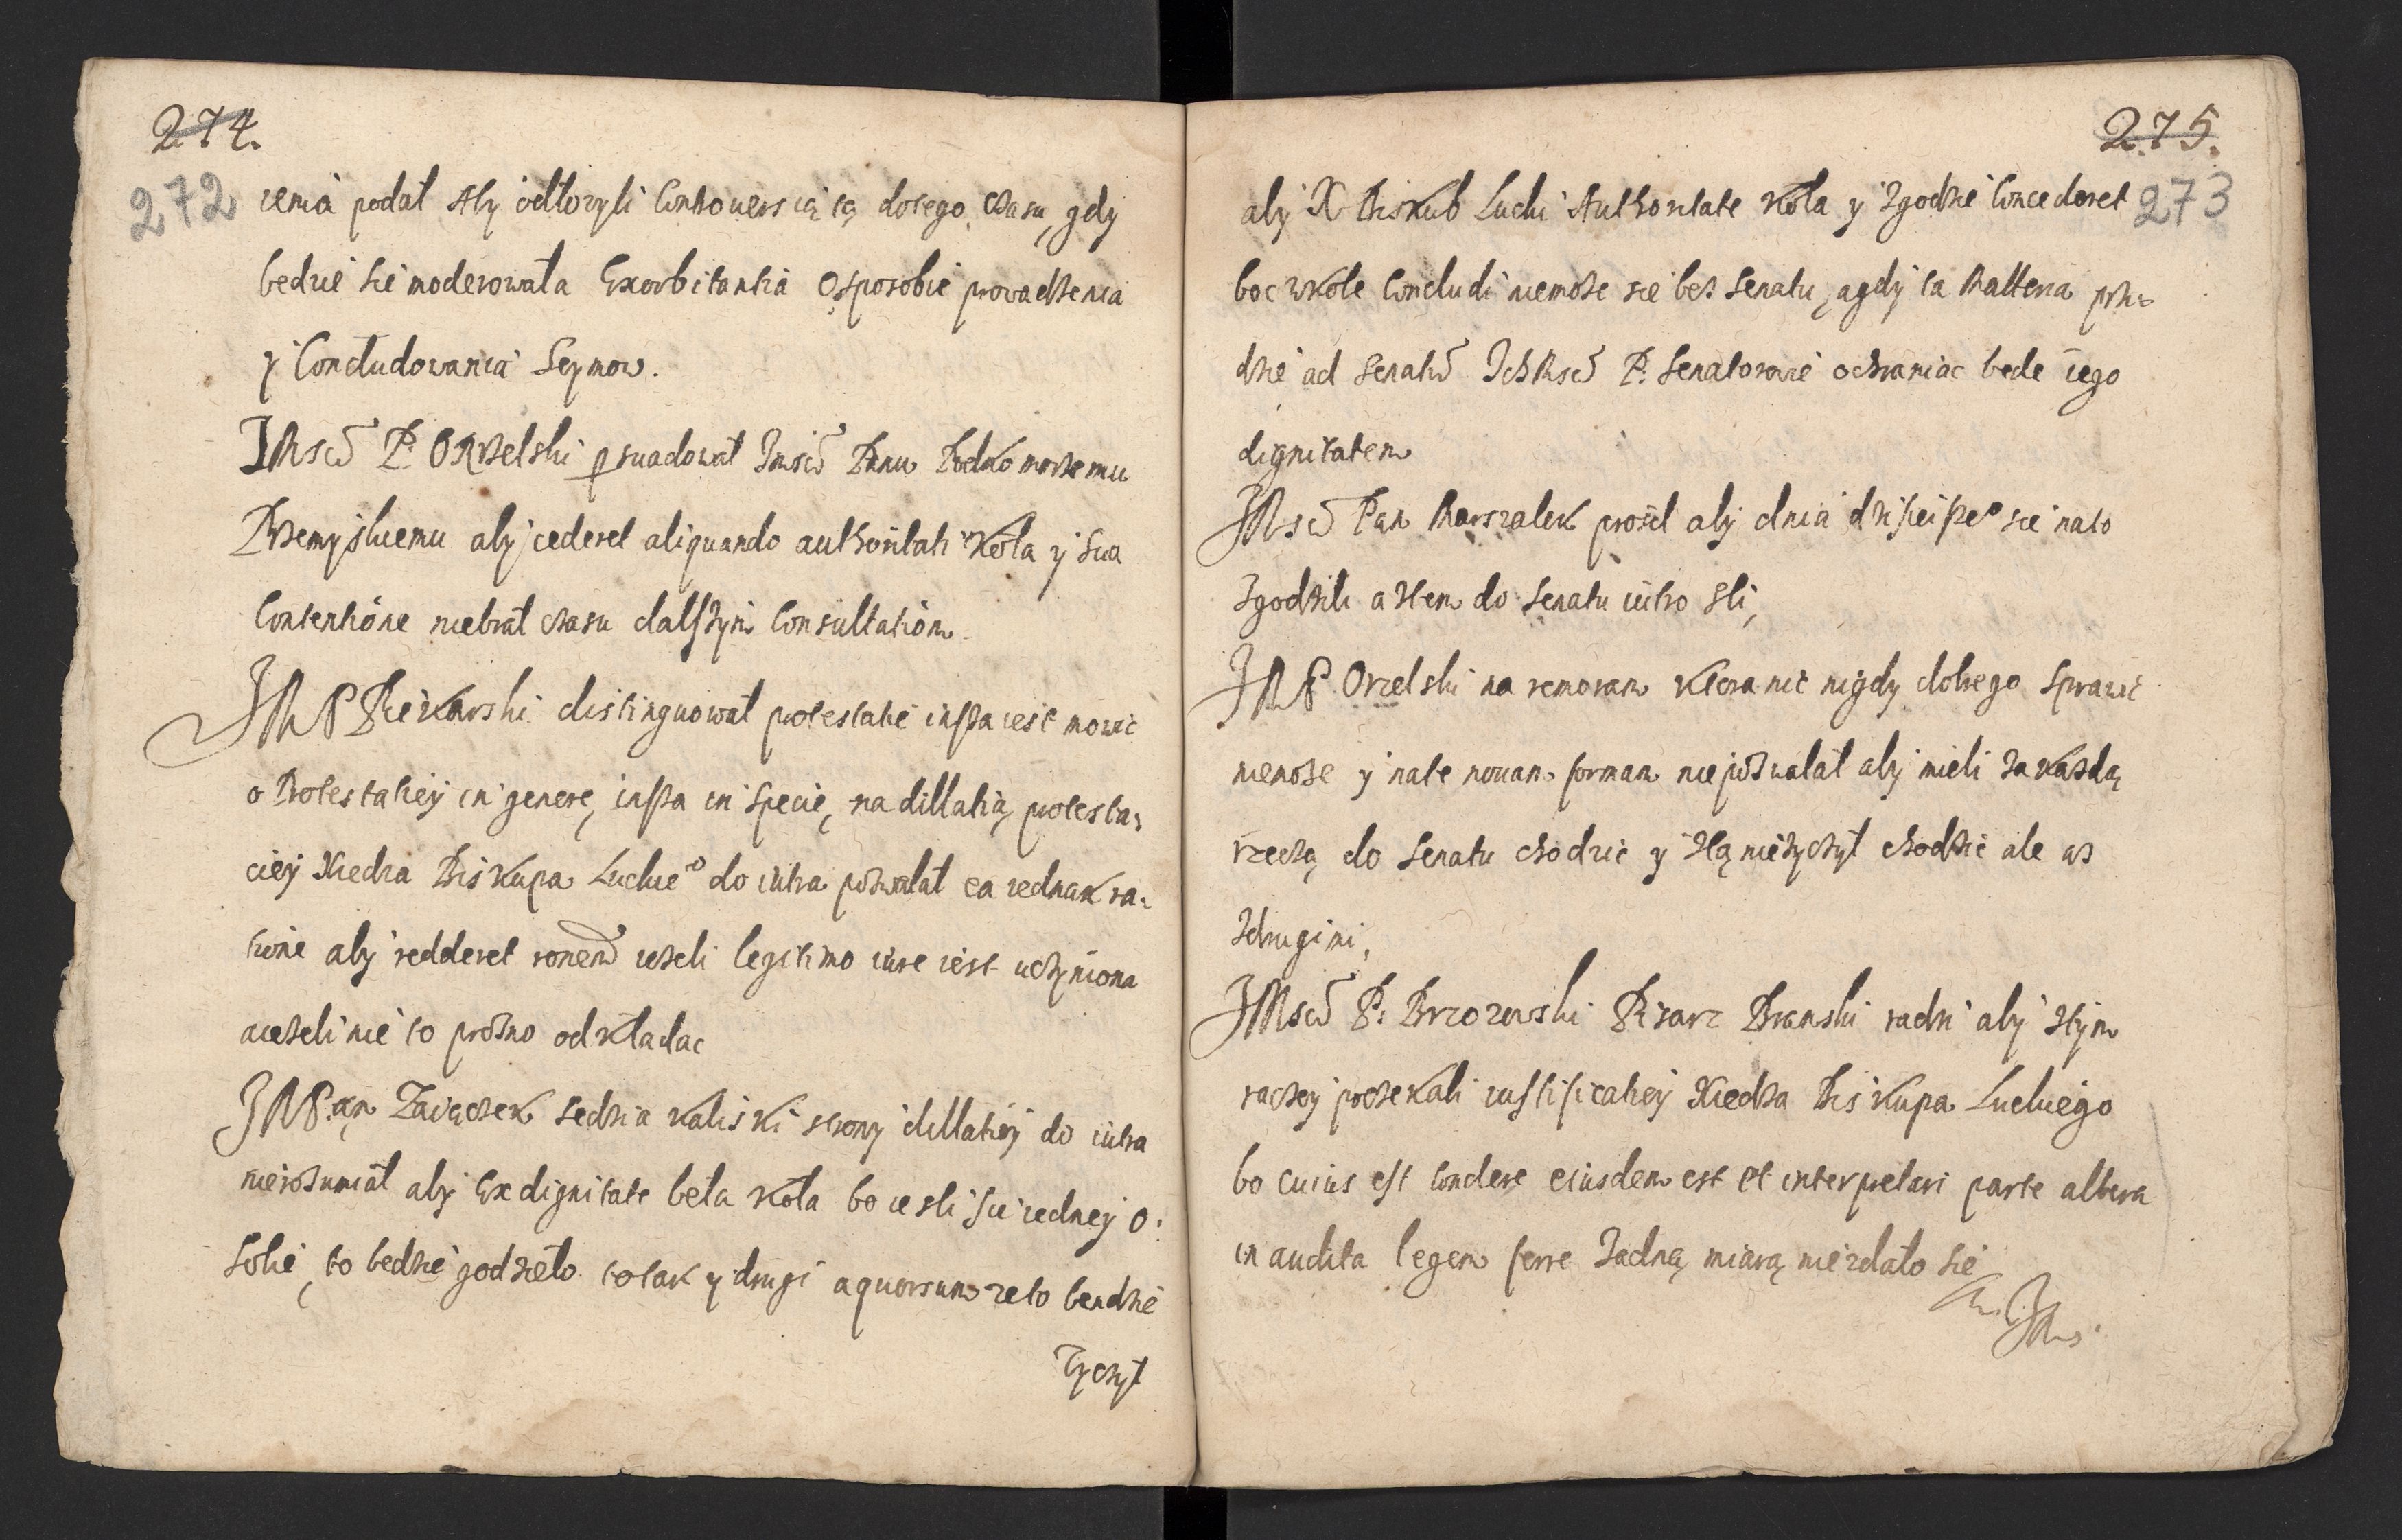 274.
272
ienia podał Aby odłozyli Controuersią tą dotego czasu, gdy
bedzie sie moderowała Exorbitantia Osposobie prowadzenia
y Concludowania Seymow.
JMsci P. Orzelski psuadował Jmsci Panu Podkomorzemu
Przemyskiemu aby cederet aliquando authoritati Koła y sua
Contentione niebrał czasu dalszym Consultatiom.
JMP Piekarski distinguował protestatie insza iest mowic
o Protestatiey in genere, insza in specie, na dillatią protesta-
ciey Xiedza Biskupa Luckieo do iutra pozwalał ea iednak ra-
tione aby redderet ronem iezeli legitimo iure iest uczyniona
aiezeli nie to prozno odkładac
JMPan Zaiączek Sedzia Kaliski strony dillatiey do iutra
nierozumiał aby Ex dignitate beła Koła bo iesli sie iedney o-
sobie, to bedzie godzieło totak y drugi aquorsum zeto bendzie
Zyczył
275.
273
aby X Biskub Lucki Authoritate Koła y Zgodzie Concederet
boc wkole Concludi niemoze sie bez Senatu, agdy ta Matteria przi-
dzie ad Senatum JchMsci P. Senatorowie ochraniac bede iego
dignitatem
JMsci Pan Marszalek prosił aby dnia dzisieiszeo sie nato
Zgodzili aztem do Senatu iutro szli,
JMP Orzelski na remoram ktora nic nigdy dobrego Sprawic
niemoze y nate nouam formam niepozwalał aby mieli zakazdą
rzeczą do Senatu chodzic y ztą nieżyczył chodzic ale az
Zdrugimi,
JMsci P. Brzozowski Pisarz Branski radzi aby ztym
raczey poczekali iustificatiey Xiedza Biskupa Luckiego
bo cuius est condere eiusdem est et interpretari parte altera
in audita legem ferre Zadną miarą niezdało sie
JMs